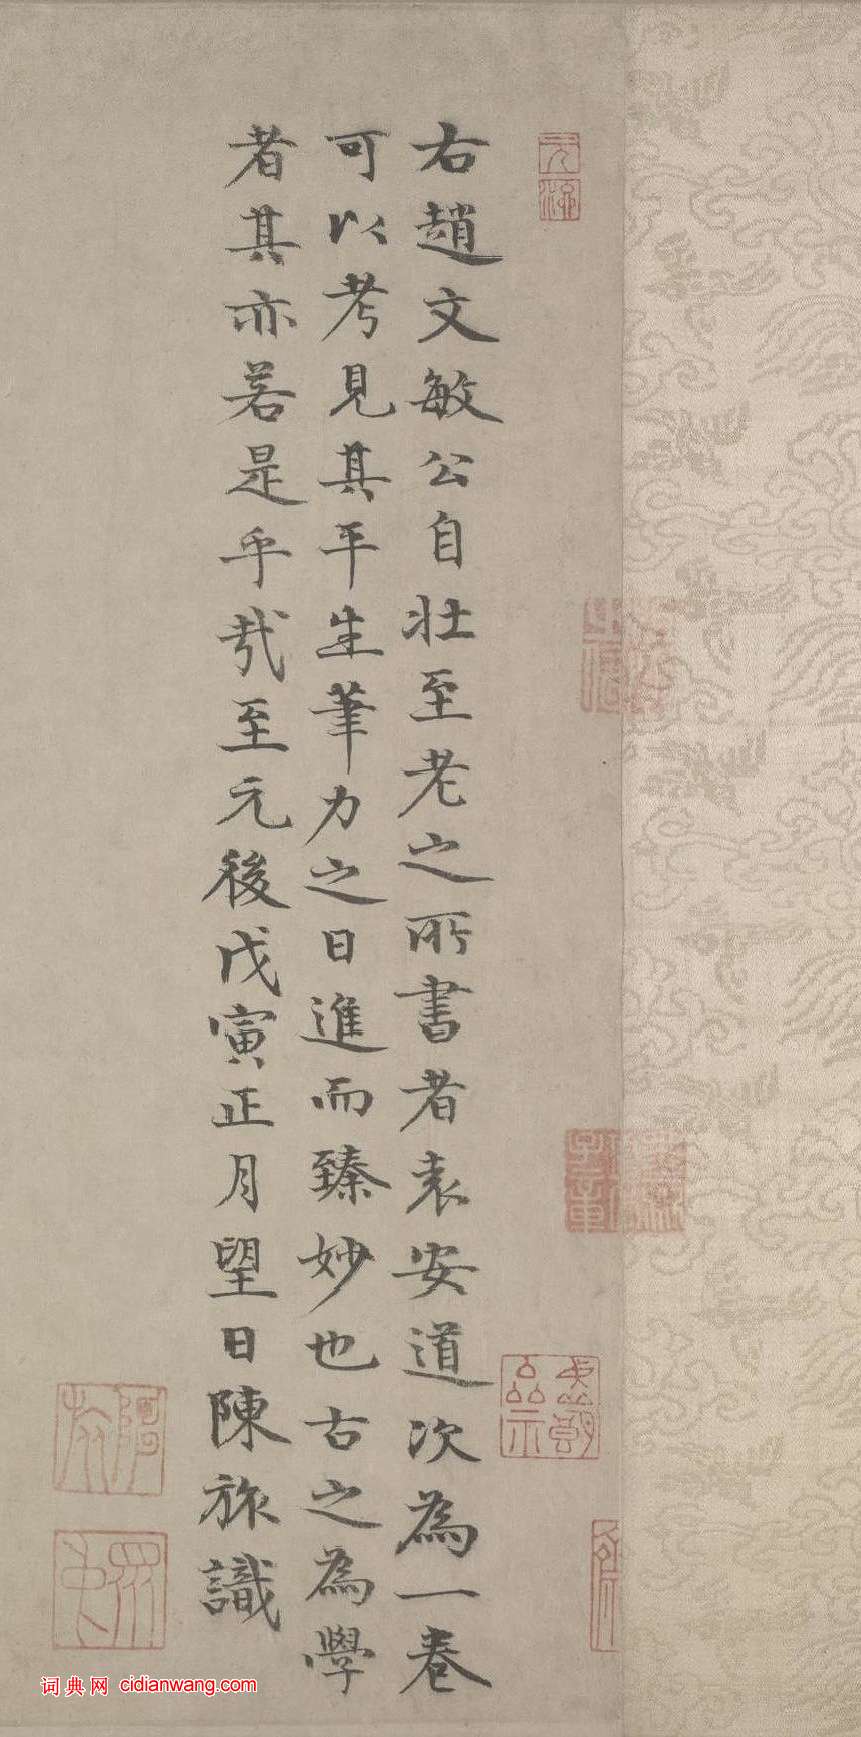 右趙文敏公自壯至老之所書者袁安道次為一卷
可以考見其平生筆力之日進而臻妙也古之為學
者其亦若是乎哉至元後戊寅正月望日陳旅識
词典网 cidianwang.com